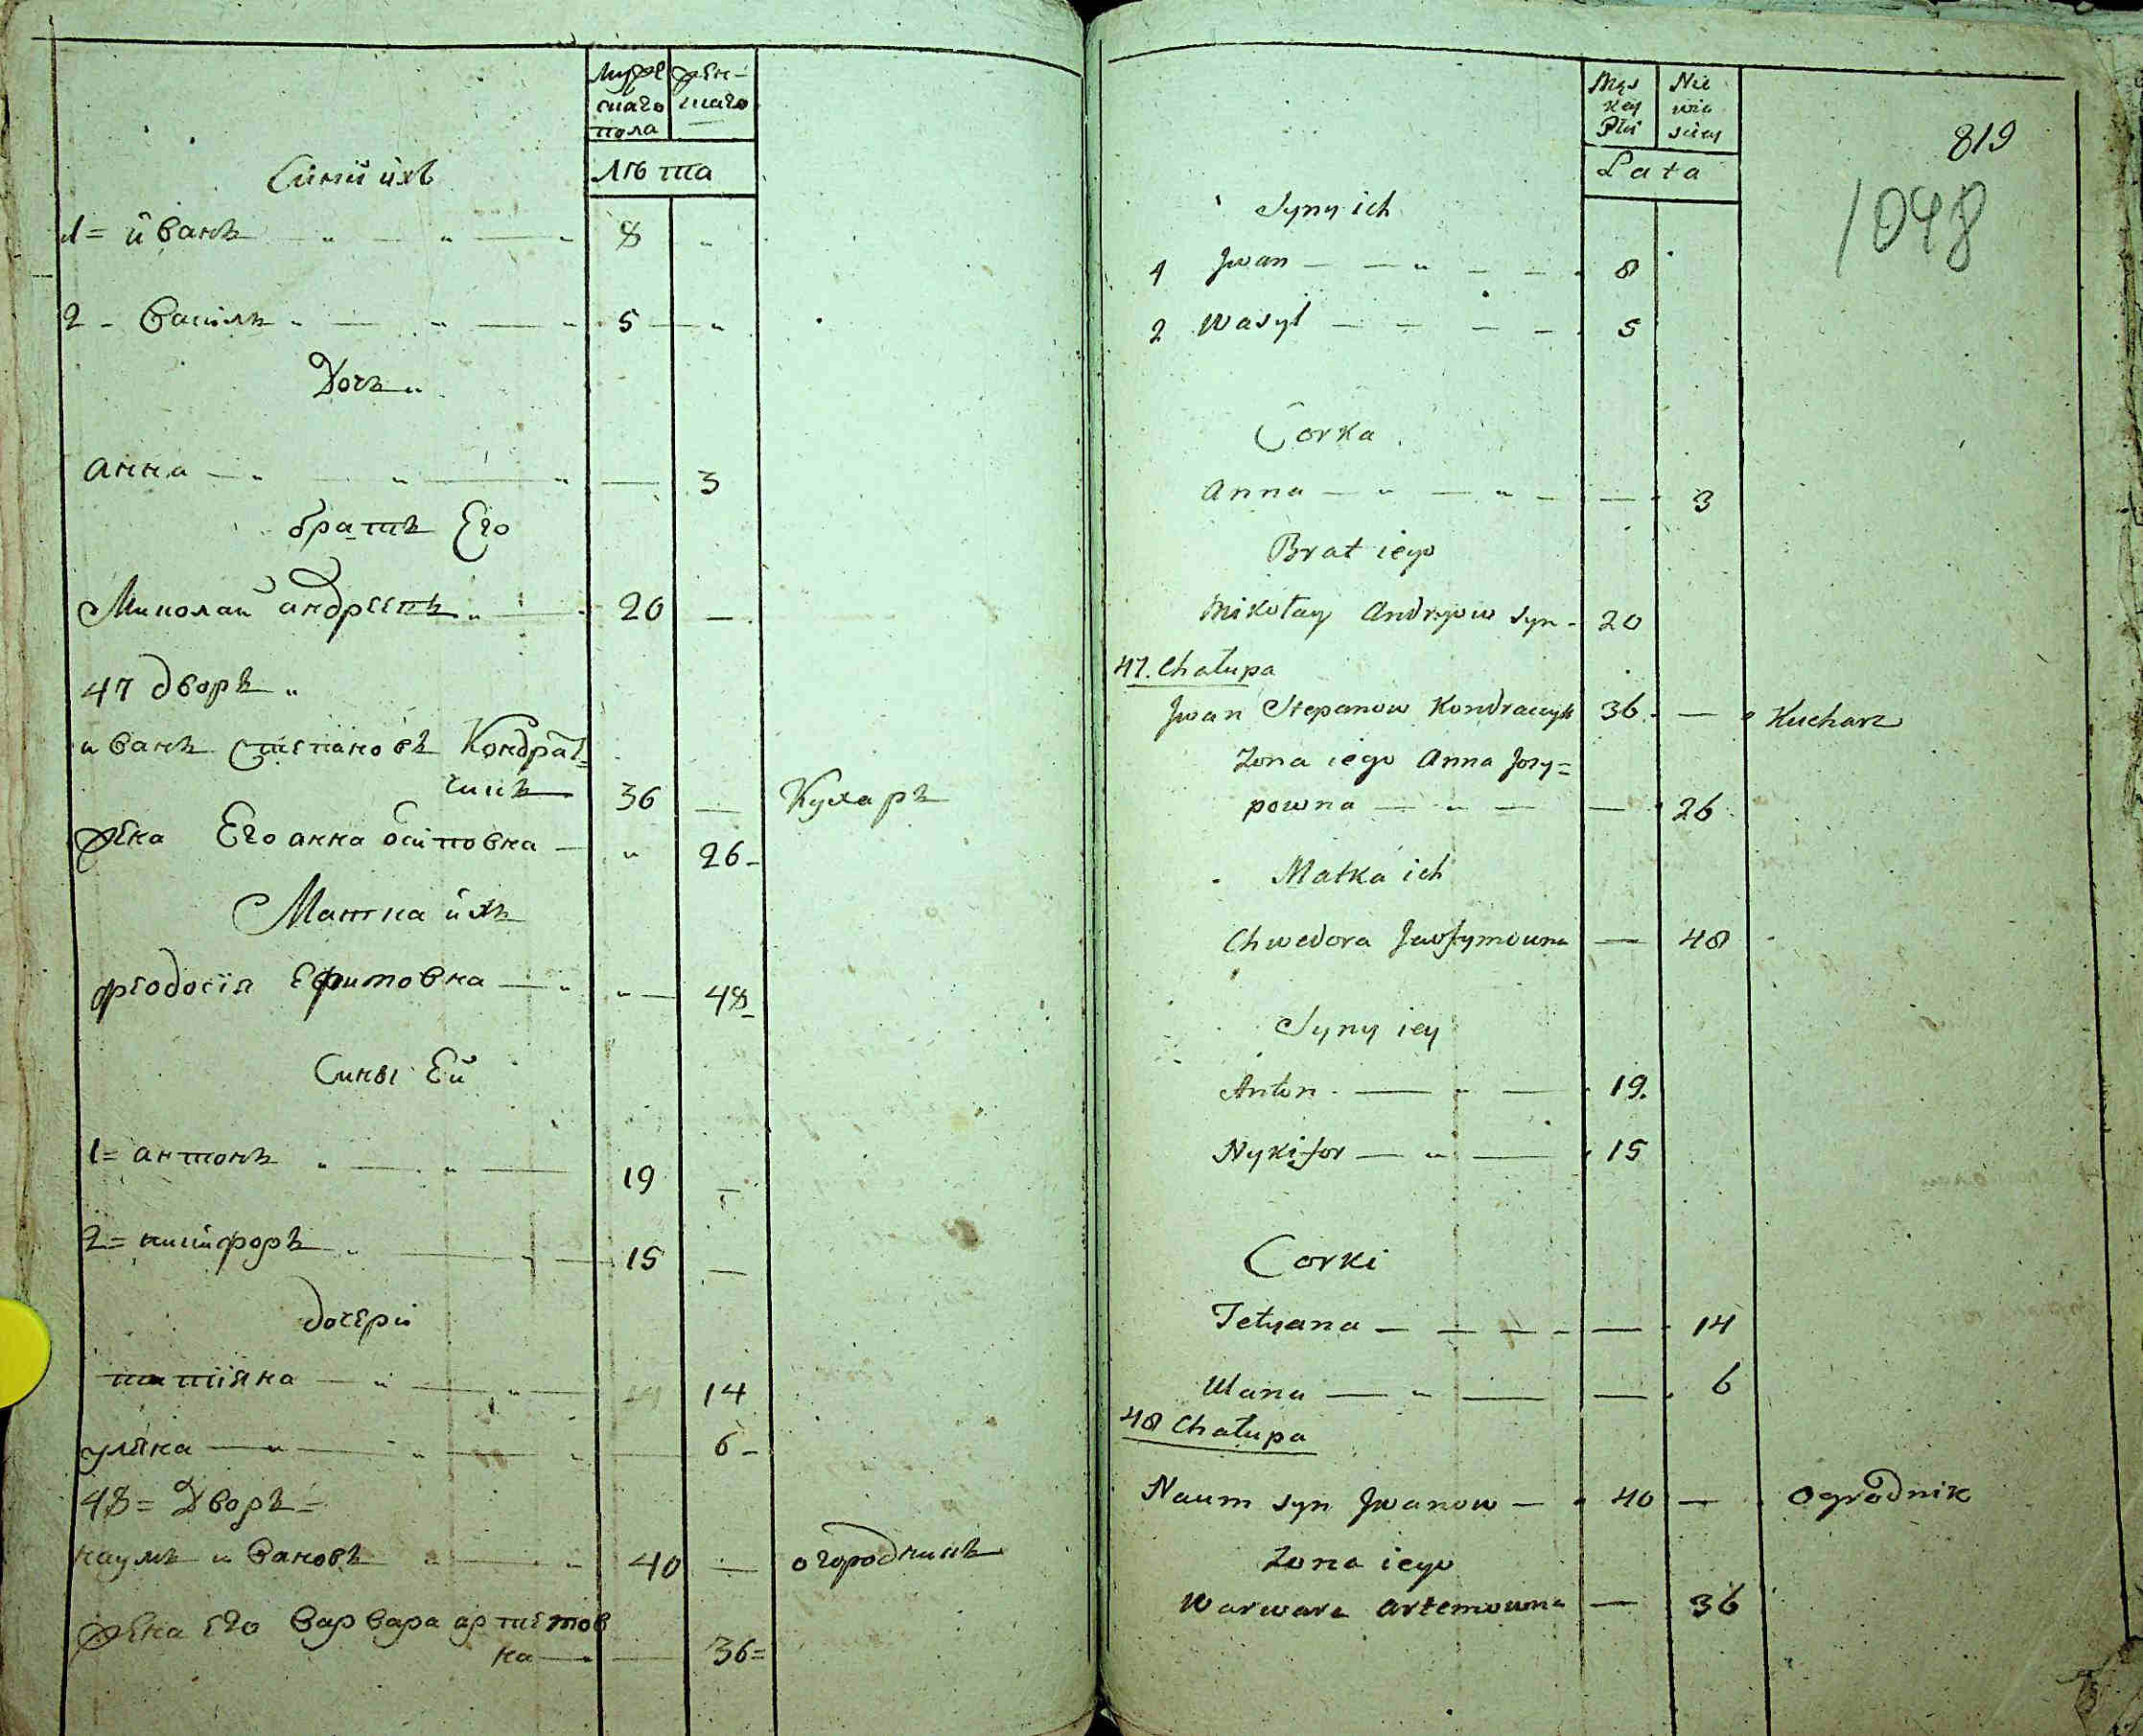 Мужескаго пола женскаго
Лѣта
Сини ихъ
1= иванъ 8
2 - василь 5
Дочь
анна 3
братъ Его
Миколай андреевъ 20
47 дворъ
иванъ степановъ Кондрат=
чикъ 36 — Кухаръ
жена Его анна осиповна — 26
Матка ихъ
феодосія Ефимовна — 48
Сины Ей
1= антонъ 19 —
2= никифоръ 15 —
дочери
татіяна — 14
уляна — 6
48= Дворъ=
наумъ ивановъ 40 — огородникъ
жена его варвара артемов
на — 36=
Męs
key
Płci
Nie
wie
sciey
Lata
819
1048
Syny ich
1 Jwan — 8
2 Wasyl — 5
Corka
Anna — 3
Brat iego
Mikołay Andryow syn - 20
47. Chałupa
Jwan Stepanow Kondraczyk 36. — Kucharz
Zona iego Anna Josy=
powna — 26
Matka ich
Chwedora Jewfymowna — 48
Syny iey
Anton — 19.
Nykifor — 15
Corki
Tetyana — 14
Ulana — 6
48 Chałupa
Naum syn Jwanow — 40 — Ogrodnik
Zona iego
Warwara Artemowna — 36